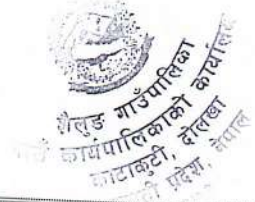 शैलुङ गाउँपालिका
गाउँ कार्यपालिकाको कार्यालय
काटाकुटी, दोलखा
प्रदेश, नेपाल